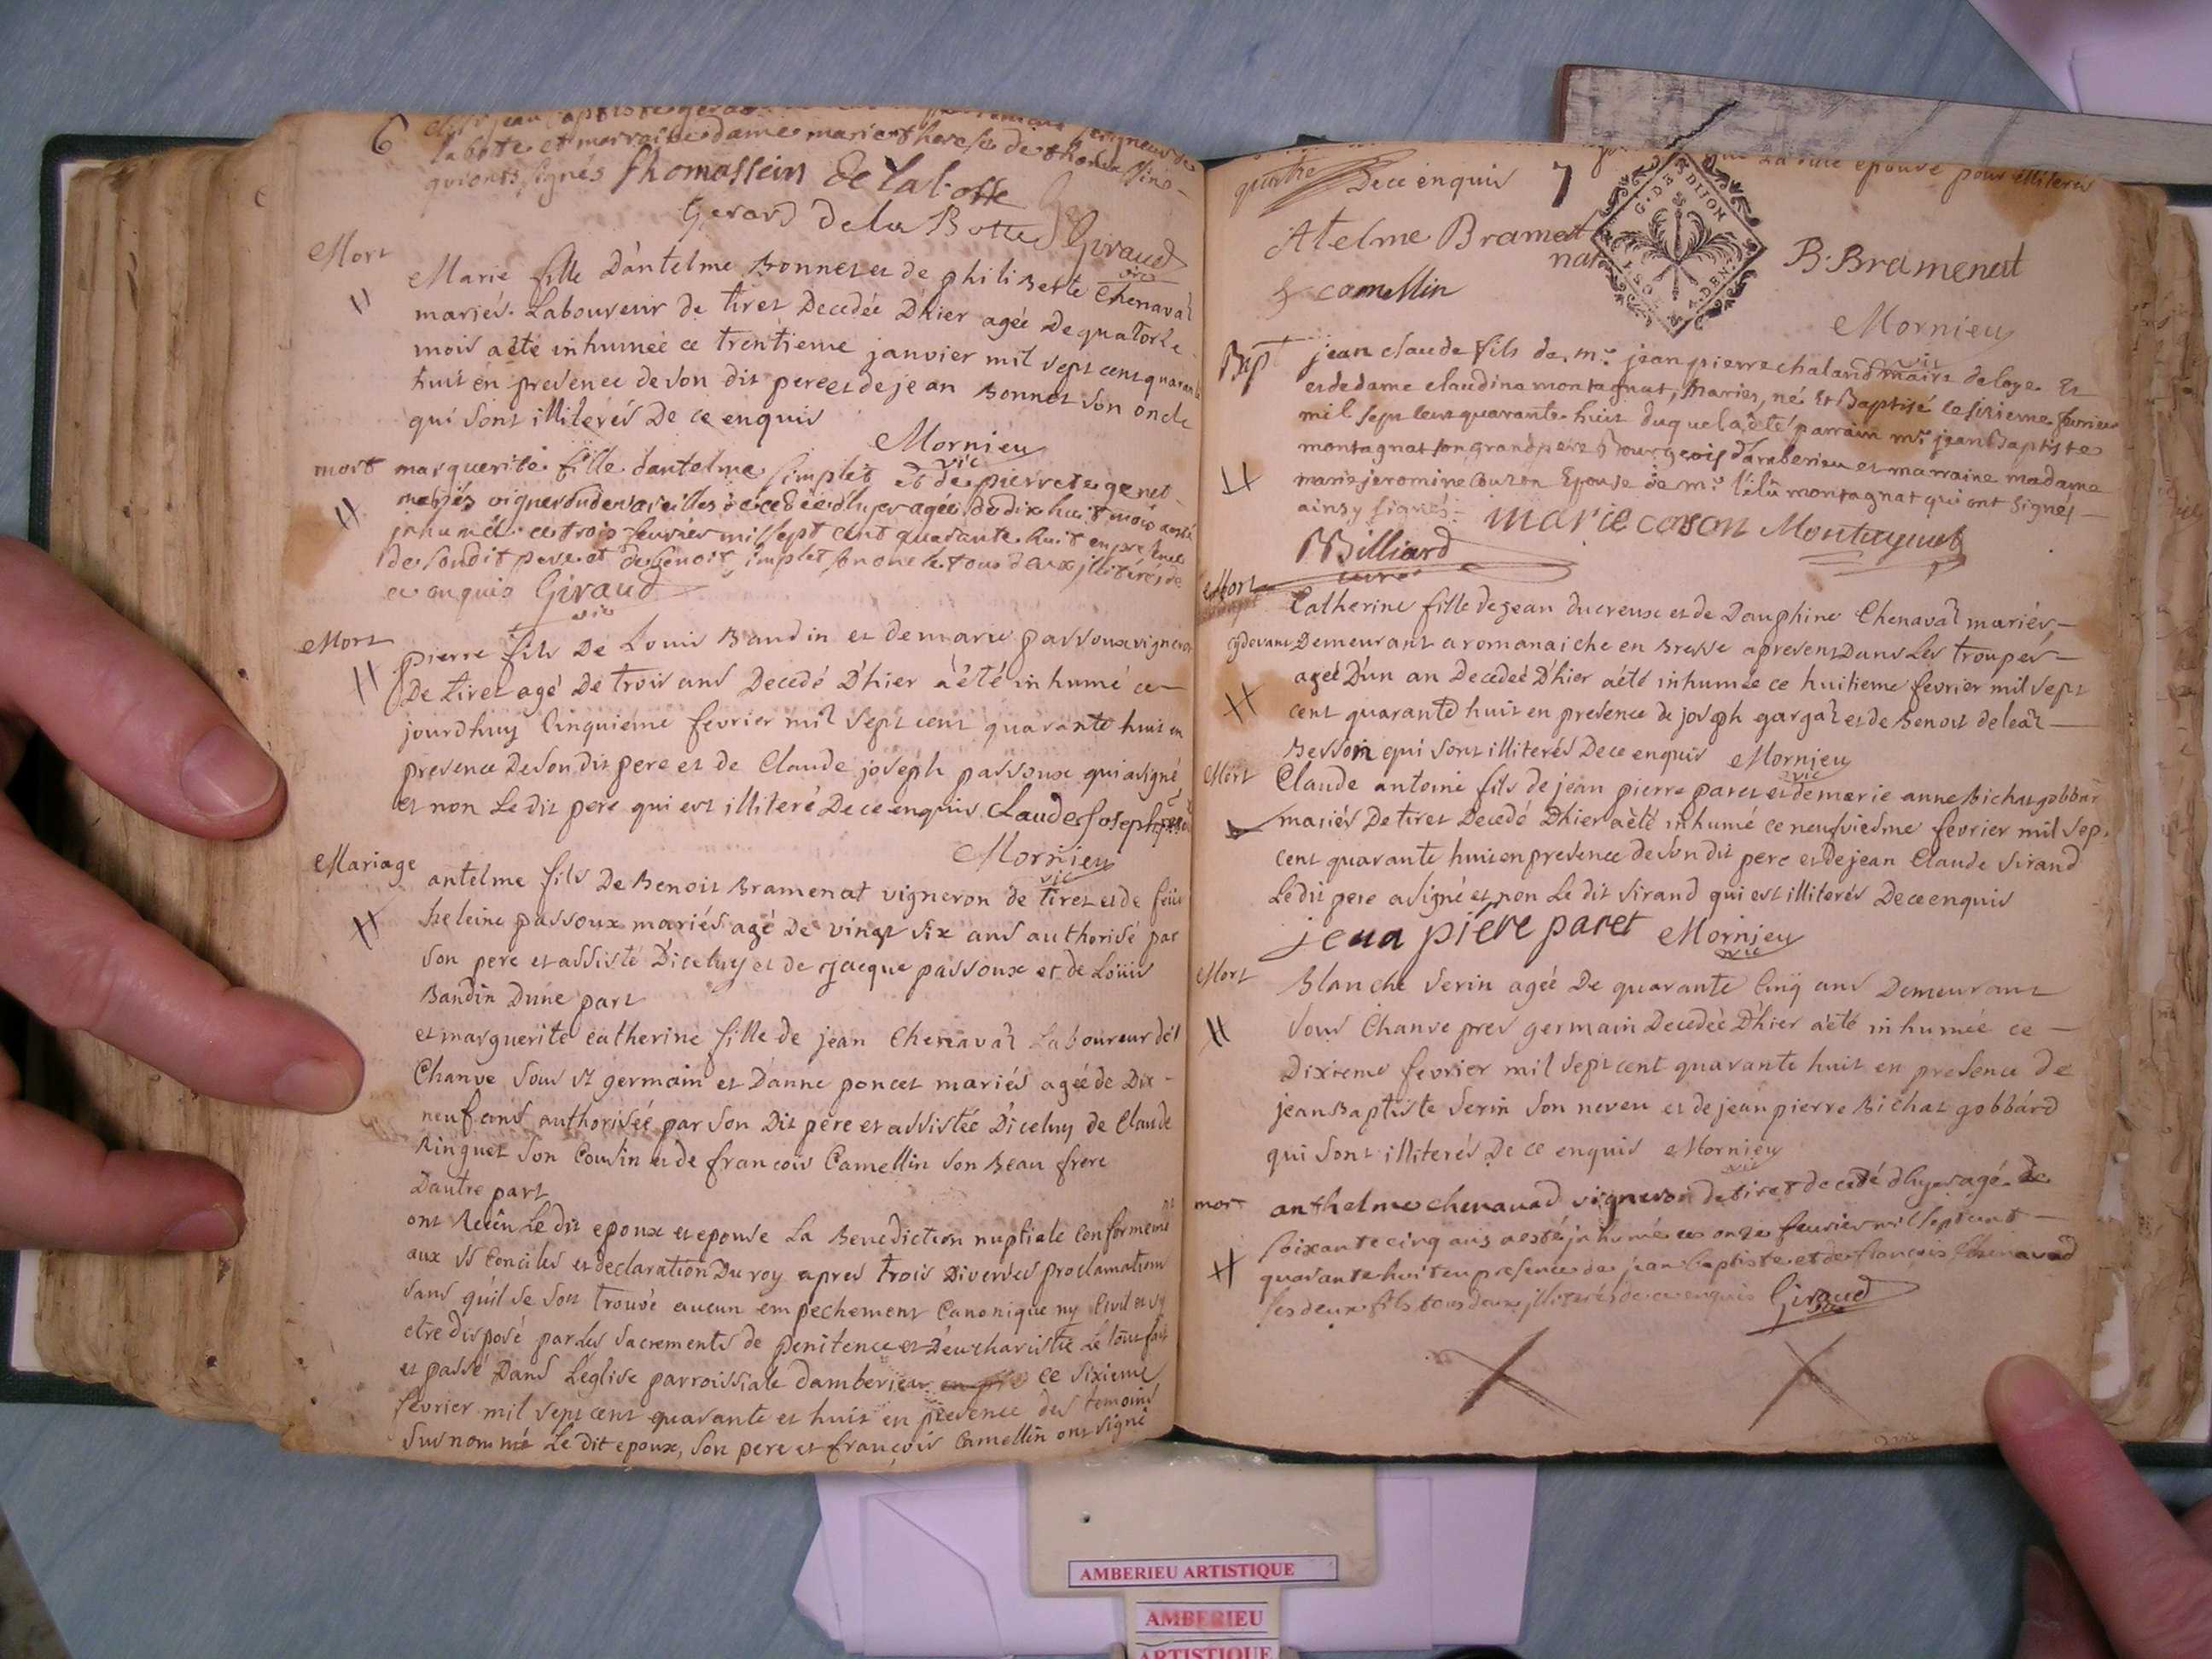 6
la botte et marraine dame marie therese de
qui ont signés Thomassin De Labotte
Gerard De la Botte Giraud
vic
Mort
Marie fille D'antelme Bonnet et de philiberte Chenaval
mariés Laboureur de tiret Decedée Dhier agée De quatorze
mois a èté inhumée ce trentieme janvier mil sept cent quarante
huit en presence de son dit pere et de jean Bonnet son oncle
qui sont illiterés De ce enquis
Mornieu
vic
mort marguerite fille dantelme Simplet et de pierrete genet
mariés vigneron de vareilles decedée dhyer agée de dix huit mois a esté
inhumée ce trois feuvrier mil sept cent quarante huit en presence
de son dit pere et de benoit simplet son oncle tous deux illitérés de
ce enquis Giraud
vic
Mort
pierre fils De Louis Baudin et de marie passoux vigneron
De tiret agé De trois ans Decedé D'hier à èté inhumé ce
jourdhuy Cinquiéme fevrier mil sept cent quarante huit en
presence De son dit pere et de Claude joseph passoux qui a signé
et non Le dit pere qui est illiteré De ce enquis Claude Joseph
Mornieu
vic
Mariage
antelme fils De Benoit Bramenat vigneron de tiret et de feüe
heleine passoux mariés agé De vingt six ans authorisé par
son pere et assisté D'iceluy et de jacque passoux et de Loüis
Baudin Dune part
et marguerite catherine fille de jean Chenaval Laboureur de
Chanve sous st germain et D'anne poncet mariés agée de Dix-
neuf ans authorisée par son Dit pere et assistée D'iceluy de Claude
Ringuet son Cousin et de francois Camellin son Beau frere
Dautre part
ont Receu Le dit epoux et epouse La Benediction nuptiale Conformement
aux ss Conciles et declaration Du roy apres trois Diverses proclamations
sans qu'il se soit trouvé aucun empechement Canonique ny Civil et s'y
etre disposé par les sacrements de penitence et D'eucharistie Le tout fait
et passé Dans L'eglise parroissiale damberieu ce sixieme
fevrier mil sept cent quarante et huit en presence des temoins
susnommé Le dit epoux, son pere et françois Camellin ont signé
7
quitte De ce enquis epouse pour illiterés
G. D E DIJON
Atelme Bramenat
nat
B. Bramenat
f camellin
Mornieu
vic
Bapt jean claude fils de mr jean pierre chaland maire de loye Et
et de dame claudina montagnat, Mariés, né Et Baptisé ce sixieme fevrier
mil sept cent quarante huit duquel a èté parrain mr jean Baptiste
montagnat son grand pere Bourgeois d'amberieu et marraine madame
marie jeromine Couzon Epouse de mr l'élû montagnat qui ont signés
ainsy signés marie coson Montagnat
Billiard
curé
Mort
Catherine fille de jean ducreux et de Dauphine Chenaval mariés
cy devant Demeurant a romanaiche en Bresse a present Dans Les troupes
ageé D'un an Decedeé D'hier a èté inhumée ce huitieme fevrier mil sept
cent quarante huit en presence de joseph gargat et de Benoit deleat
Besson qui sont illiterés De ce enquis Mornieu
vic
Mort Claude antoine fils de jean pierre paret et de marie anne Bichat gobbar
mariés De tiret Decedé Dhier a èté inhumé ce neufviesme fevrier mil sept
cent quarante huit en presence de son dit pere et de jean Claude Sirand
Le dit pere a signé et non Le dit Sirand qui est illiterés De ce enquis
jean piere paret Mornieu
vic
Mort
Blanche Serin ageé De quarante Cinq ans Demeurant
sous Chanve pres germain Decedeé D'hier a èté inhumée ce
Dixieme fevrier mil sept cent quarante huit en presence De
jean Baptiste Serin son neveu et de jean pierre Bichat gobbard
qui sont illiterés De ce enquis Mornieu
vic
mort anthelme chenavad vigneron de tiret decedé dhyer agé de
soixante cinq ans a esté inhumé ce onze feuvrier mil sept cent
quarante huit en presence de jean baptiste et de françois chenavad
ses deux fils tous deux illiterés de ce enquis Giraud
vic
AMBERIEU ARTISTIQUE
AMBERIEU
ARTISTIQUE